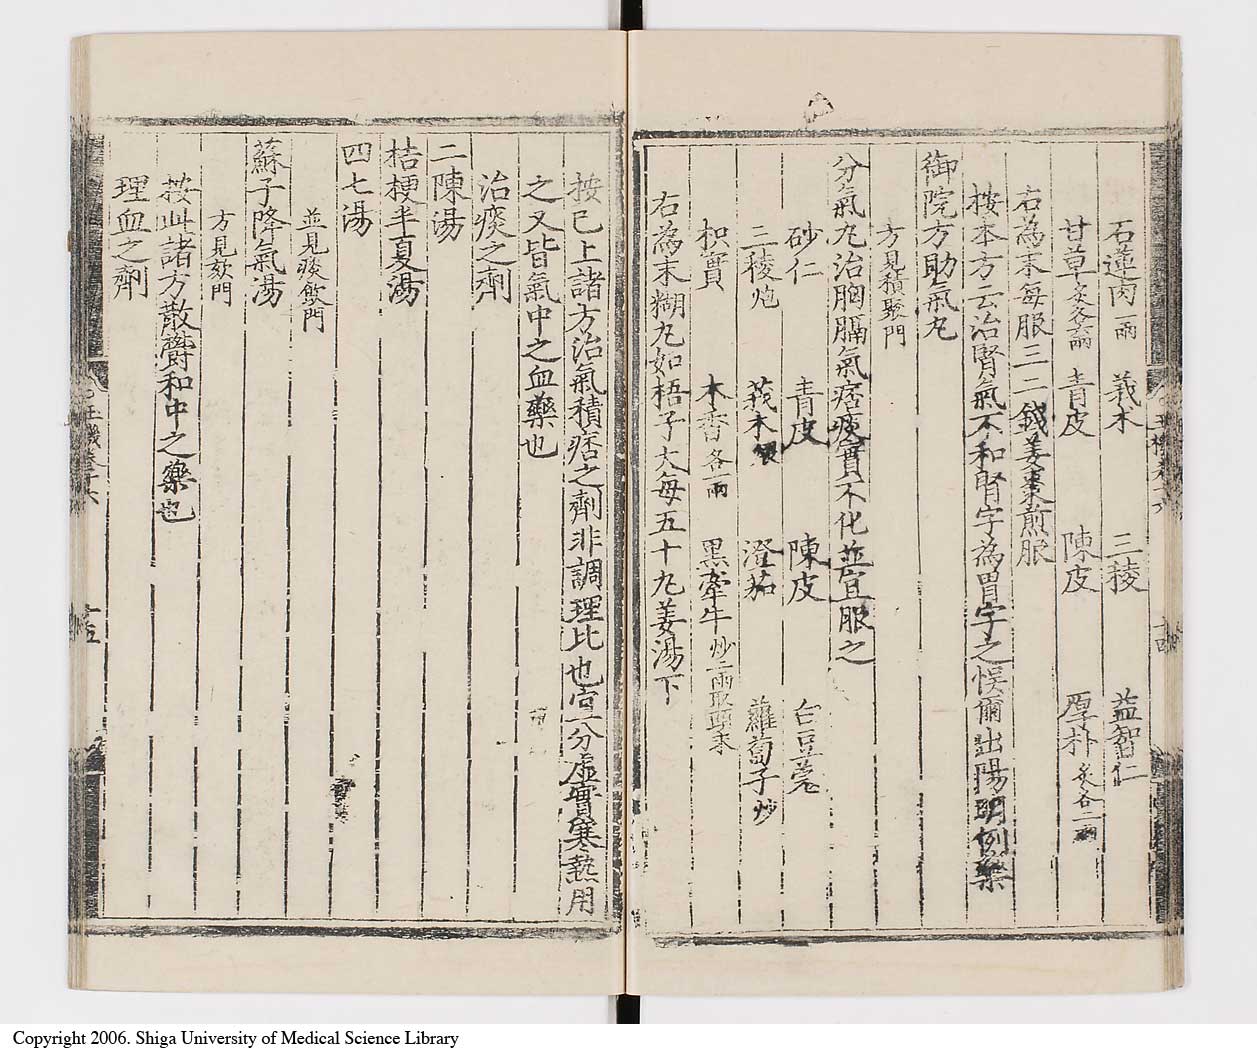 石蓮肉一兩 莪朮 三稜 益智仁
甘草炙各三兩 青皮 陳皮 厚朴炙各二兩
右為末每服三二錢姜棗煎服
按本方云治腎氣不和腎字為胃字之悞爾出陽明例藥
御院方助氣丸
方見積聚門
分氣丸治胸膈氣痞痰實不化並宜服之
砂仁 青皮 陳皮 白豆蔻
三稜炮 莪朮 澄茄 蘿蔔子炒
枳實 木香各一兩 黑牽牛炒二兩取頭末
右為末糊丸如梧子大每五十丸姜湯下
按已上諸方治氣積痞之劑非調理比也宜分虛實寒熱用
之又皆氣中之血藥也
治痰之劑
二陳湯
桔梗半夏湯
四七湯
並見痰飲門
蘇子降氣湯
方見欬門
按此諸方散欝和中之藥也
理血之劑
玉機卷十六
十五
Copyright 2006. Shiga University of Medical Science Library